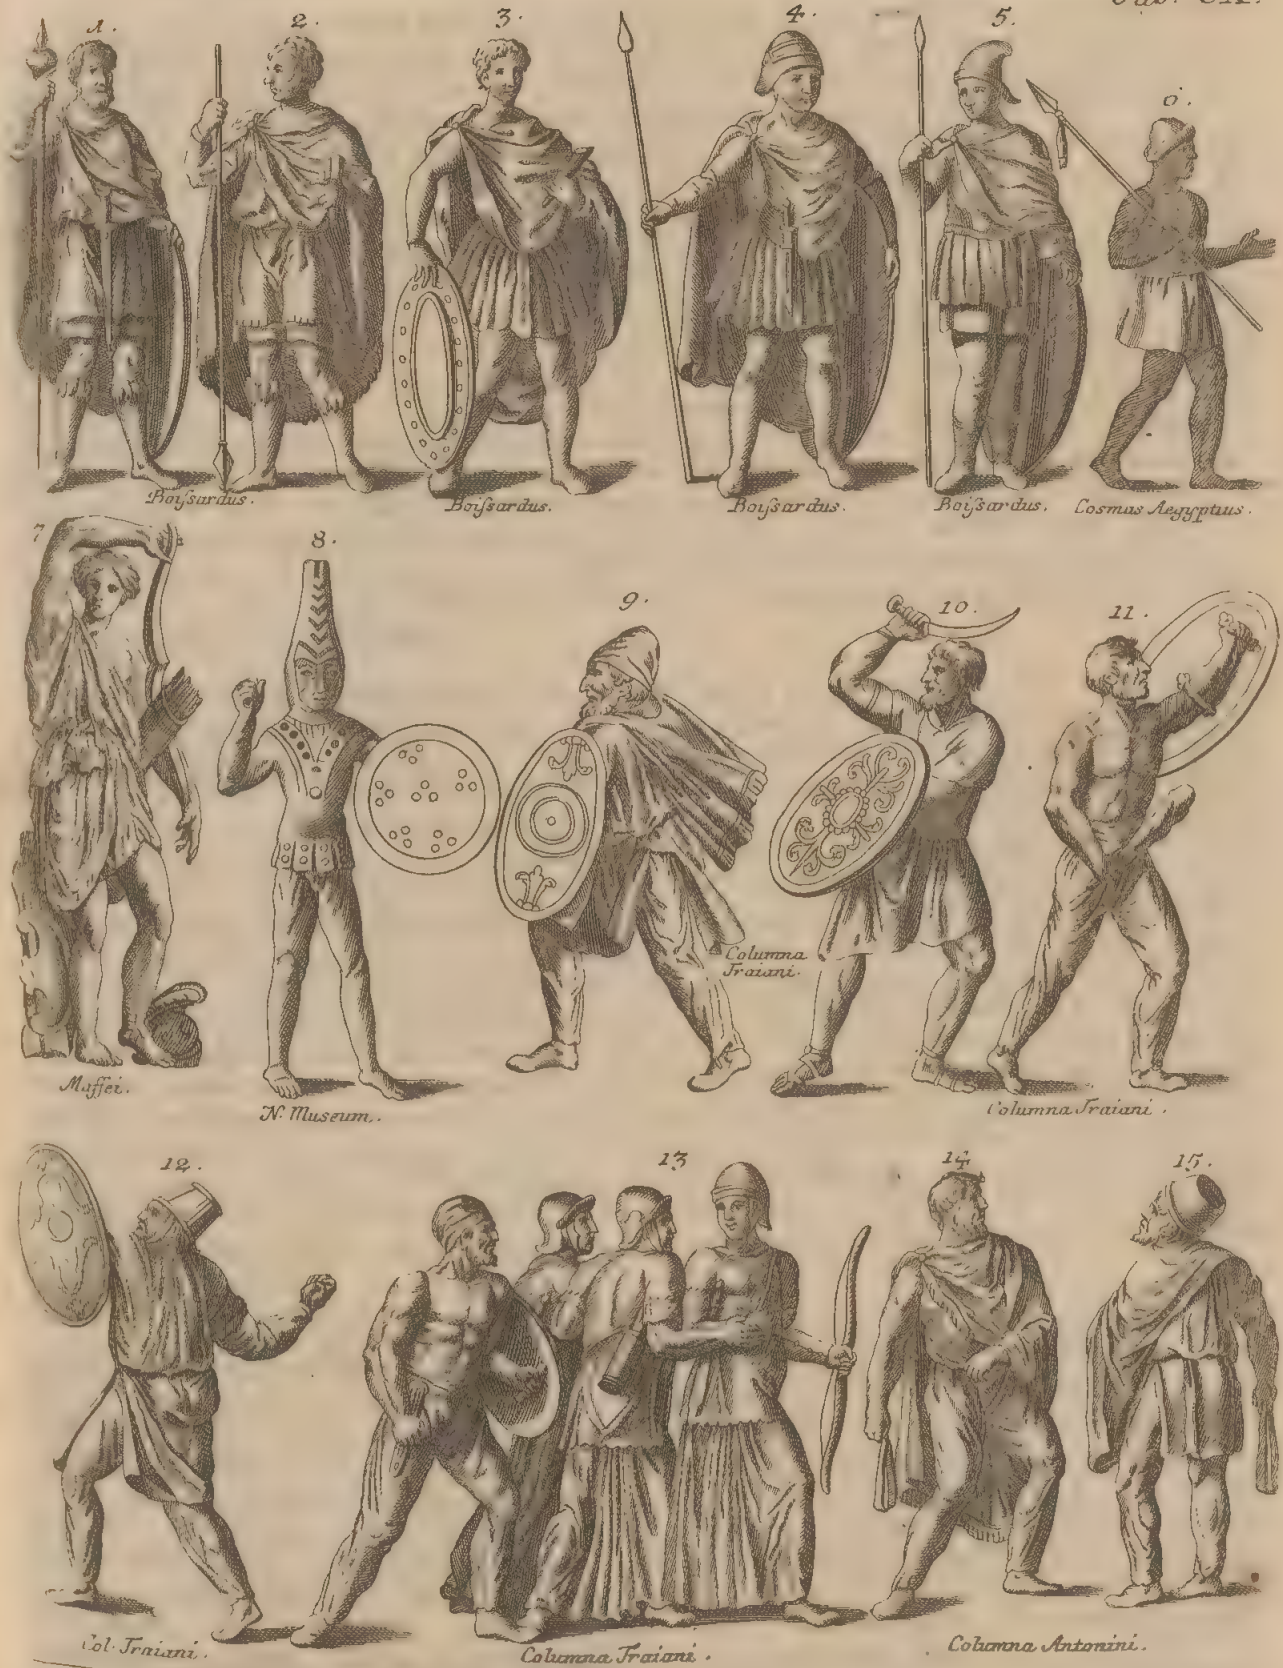 1.
2.
3.
4.
5.
6.
Boiſsardus.
Boiſsardus.
Boiſsardus.
Boiſsardus.
Cosmas Aegyptius.
7
8.
9.
10.
11.
Maffei.
N. Museum.
Columna
Traiani.
Columna Traiani.
12.
13
14
15.
Col. Traiani.
Columna Traiani.
Columna Antonini.